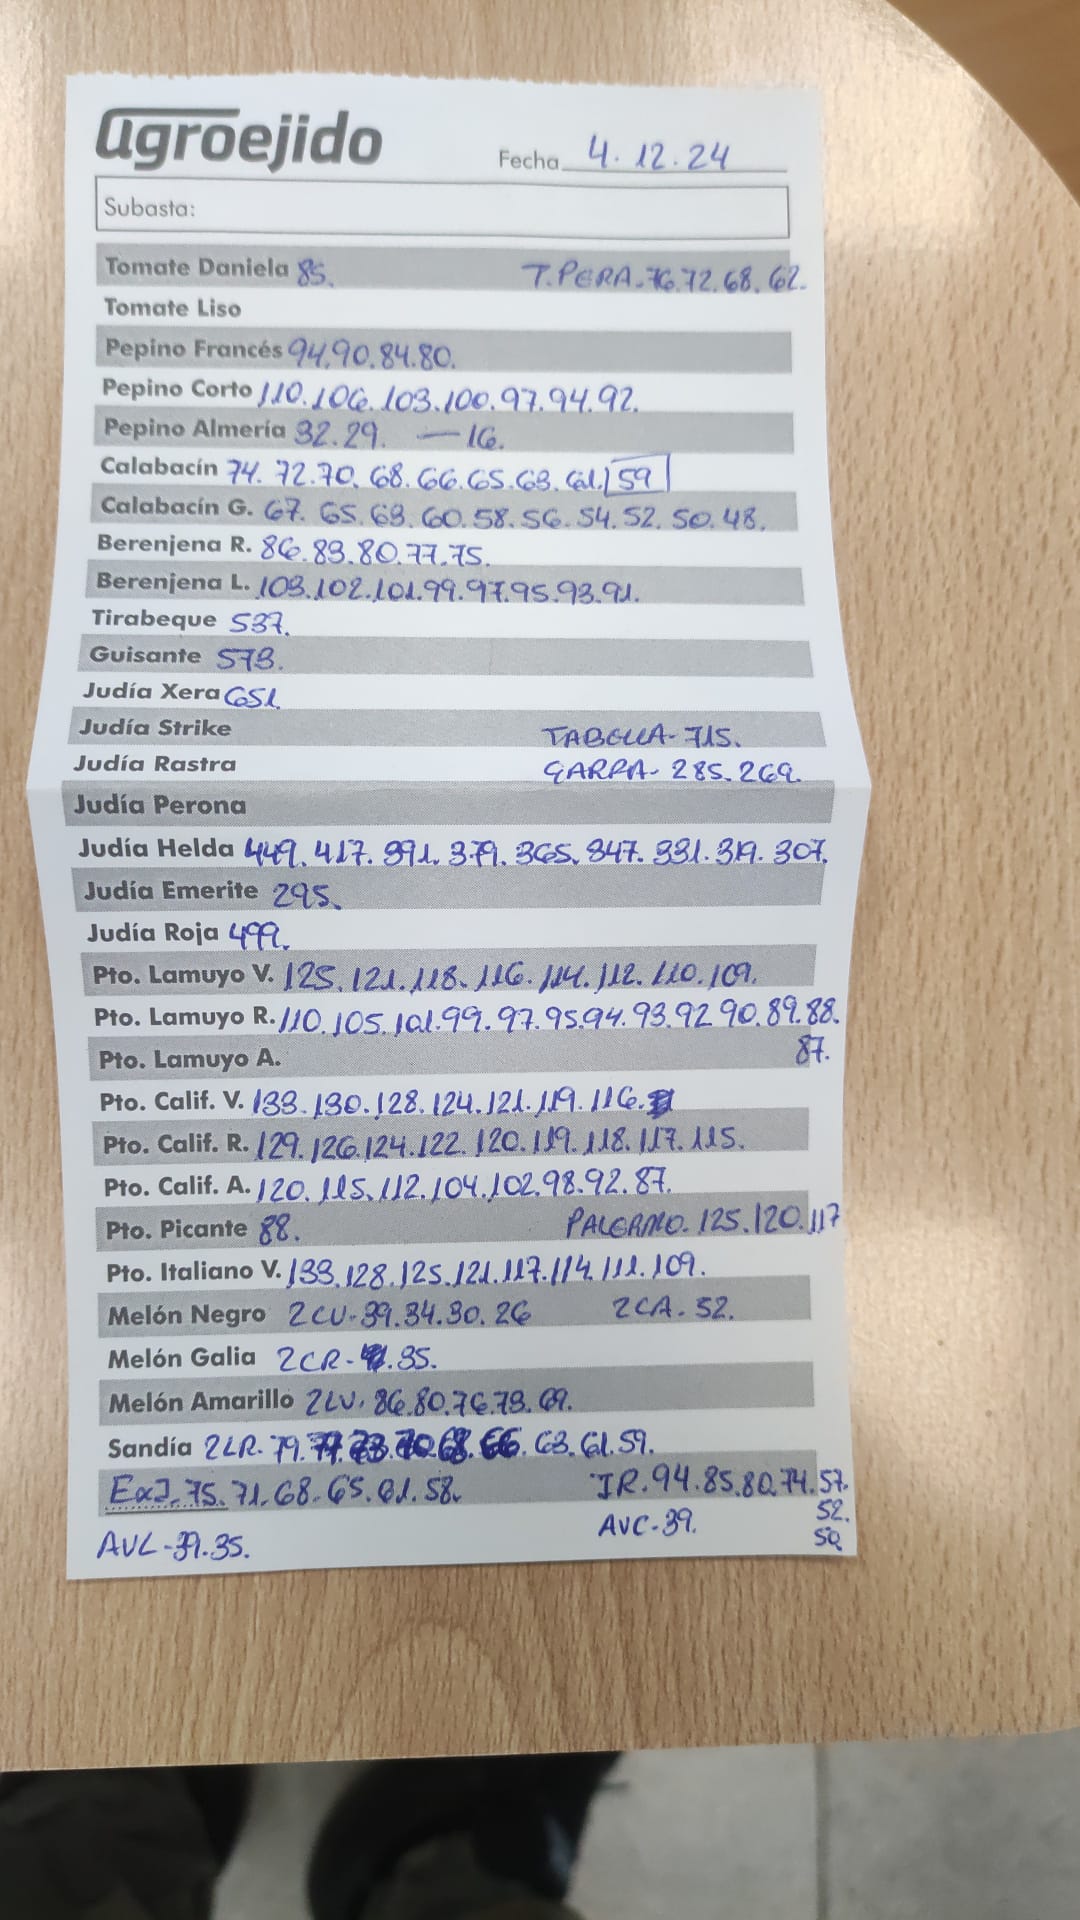 agroejido
Fecha 4.12.24
Subasta:
Tomate Daniela 85. T.PERA-76.72.68.62.
Tomate Liso
Pepino Francés 94.90.84.80.
Pepino Corto 110.106.103.100.97.94.92.
Pepino Almería 32.29. —16.
Calabacín 74.72.70.68.66.65.63.61.59
Calabacín G. 67.65.63.60.58.56.54.52.50.48.
Berenjena R. 86.83.80.77.75.
Berenjena L. 103.102.101.99.97.95.93.91.
Tirabeque 537.
Guisante 573.
Judía Xera 651.
Judía Strike TABELLA-715.
Judía Rastra GARRA-285.269.
Judía Perona
Judía Helda 449.417.391.379.365.347.331.319.307.
Judía Emerite 295.
Judía Roja 499.
Pto. Lamuyo V. 125.121.118.116.114.112.110.109.
Pto. Lamuyo R. 110.105.101.99.97.95.94.93.92 90.89.88.
Pto. Lamuyo A. 87.
Pto. Calif. V. 133.130.128.124.121.119.116.
Pto. Calif. R. 129.126.124.122.120.119.118.117.115.
Pto. Calif. A. 120.115.112.104.102.98.92.87.
Pto. Picante 88. PALERMO.125.120.117
Pto. Italiano V. 133.128.125.121.117.114.111.109.
Melón Negro 2CV-39.34.30.26 2CA-52.
Melón Galia 2CR- .35.
Melón Amarillo 2LV.86.80.76.73.69.
Sandía 2LR.79.77.73.70.68.66.63.61.59.
ExJ.75.71.68.65.61.58. JR.94.85.80.74.57.
52.
AVL-39.35. AVC-39. 50.